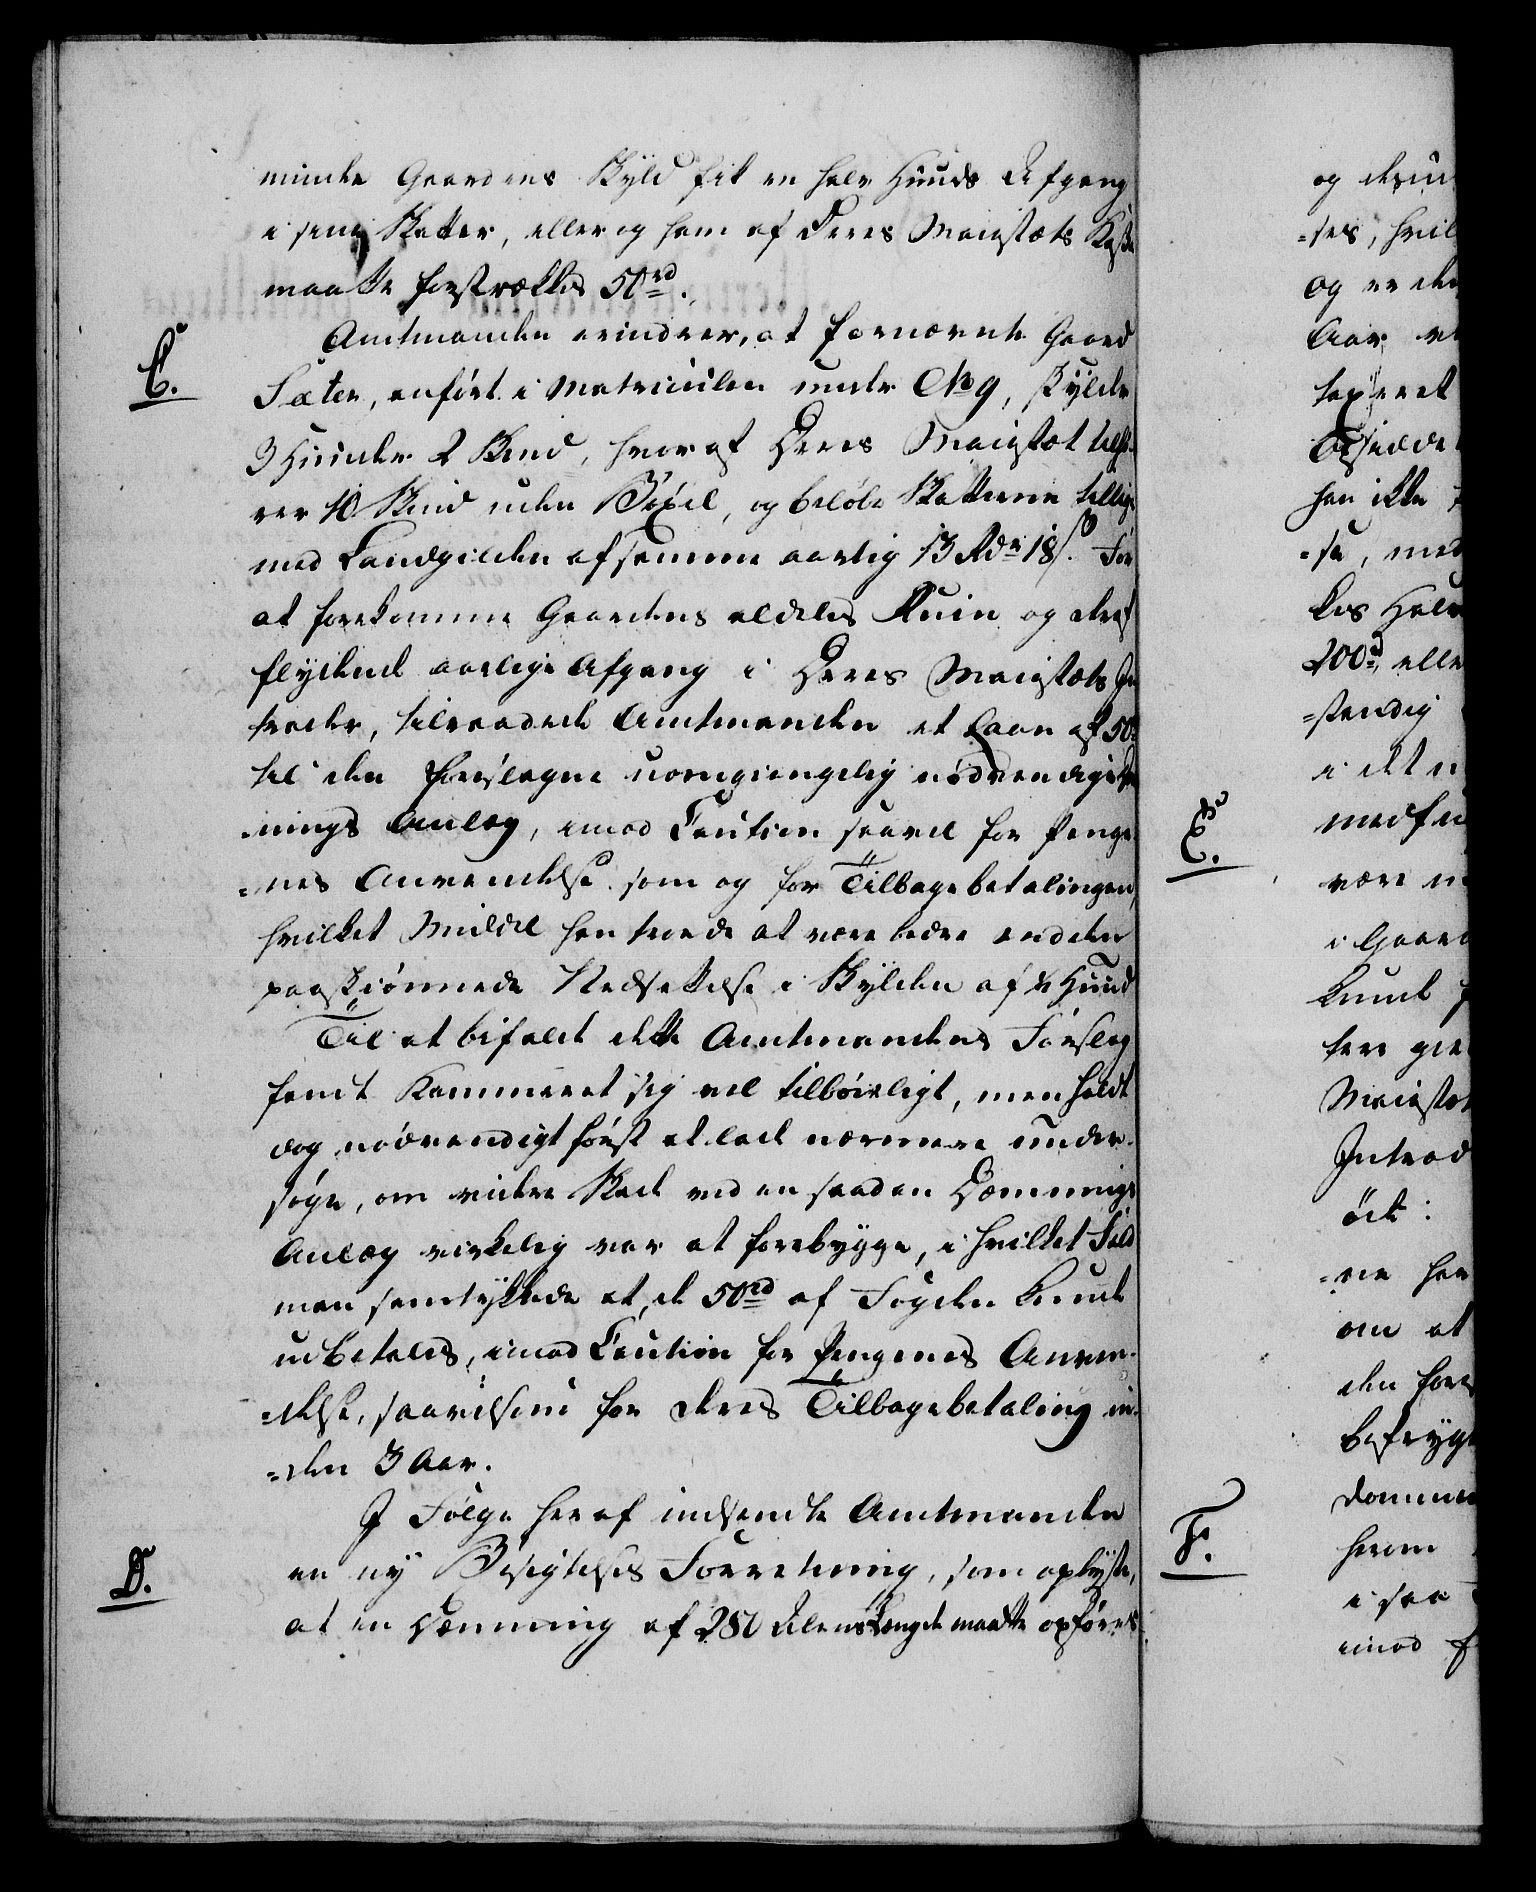 mindre Gaardens Skyld fik en halv Huuds Afgang
i sine Skatter, eller og ham af Deres Majestæts Kasse
maatte forstrækkes 50rd.
C.
Amtmanden erindrer, at fornævnte Gaard
Sæter, anført i Matriculen under No 9, skylder
3 Huuder 2 Skind, hvoraf Deres Majestæt tilhø-
rer 10 Skind uden Bøxel, og beløbe Skatterne tillige
med Landgilden af samme aarlig 13 Rdr 18 s. For
at forekomme Gaardens aldeles Ruin og deraf
flydende aarlige Afgang i Deres Majestæts In
trader, tilraadede Amtmanden et Laan af 50rd
til den foreslagne uomgiængelig nødvendige Dæm
nings Anlæg, imod Caution saavel for Penge
=nes Anvendelse som og for Tilbagebetalingen,
hvilket Middel han troede at være bedre end den
paaskiønnede Nedsettelse i Skylden af ½ Huud
Til at bifalde dette Amtmandens Forslag
fandt Kammeret sig vel tilbøieligt, men holdt
dog nødvendigt først at lade nærmere under-
søge, om videre Skade ved en saadan Dæmnings
Anlæg virkelig var at forebygge, i hvilket Fald
man samtykkede at de 50rd af Fogden kunde
udbetales, imod Caution for Pengenes Anven-
=delse, saavelsom for deres Tilbagebetaling in-
=den 3 Aar.
D.
I Følge heraf indsendte Amtmanden
en ny Besigtelses Forretning, som oplyste,
at en Dæmning af 280 Alens Længde maatte opføres
og desu
=ses, hvil
og er de
Aar
taxeret
Opsidde
han ikke
=se, med
kes Halv
200rd elle
=stændig
i det
E.
medfø
være
i Gaard
kunde
tere
Majestæt
Intrad
øde:
=ne har
om at
den fore
befrygt
F.
Dommer
herom
i saa
imod